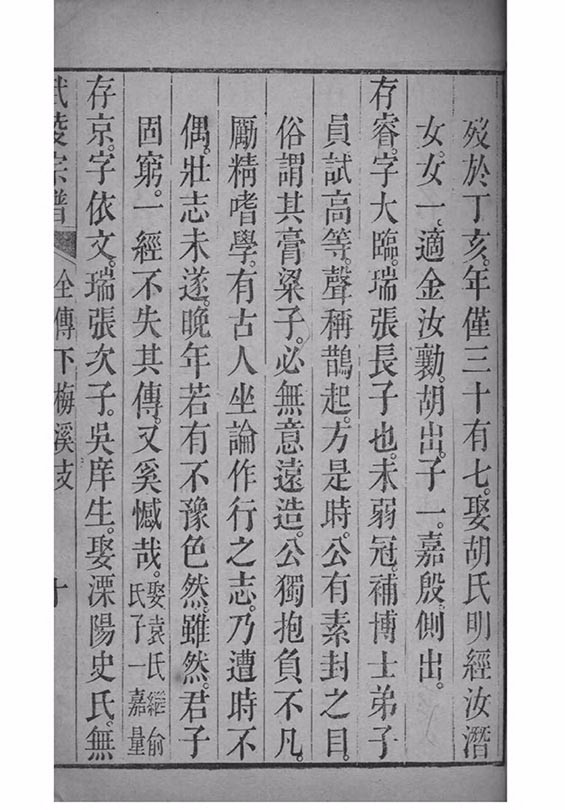 歿於丁亥。年僅三十有七。娶胡氏明經汝潛
女。女一。適金汝勷。胡出。子一。嘉殷。側出。
存睿。字大臨。瑞張長子也。未弱冠。補博士弟子
員試高等。聲稱鵲起。方是時。公有素封之目。
俗謂其膏粱子。必無意遠造。公獨抱負不凡。
勵精嗜學。有古人坐論作行之志。乃遭時不
偶。壯志未遂。晚年若有不豫色然。雖然。君子
固窮。一經不失其傳。又奚憾哉。娶袁氏繼俞
氏子一嘉量
存京。字依文。瑞張次子。吳庠生。娶溧陽史氏。無
武陵宗譜 全傳下梅溪支 十